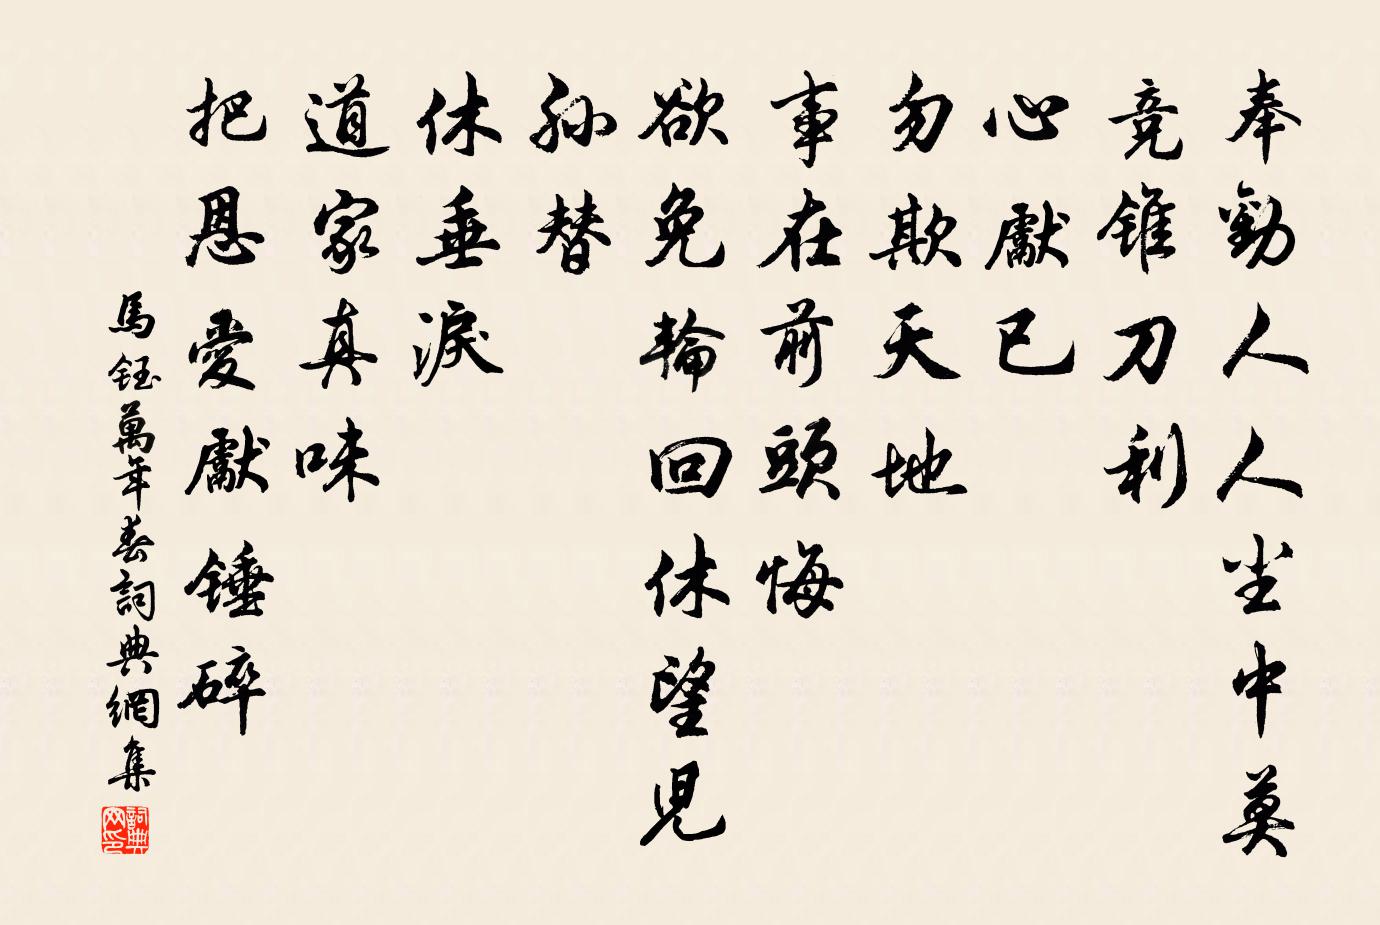 奉勸人人坐中莫
竞錐刀利
心獻已
勿欺天地
事在前頭悔
欲免輪回休望兒
孫替
休垂淚
道家真味
把恩愛獻錘碎
馬鈺萬年春詞典網集
詞典网印